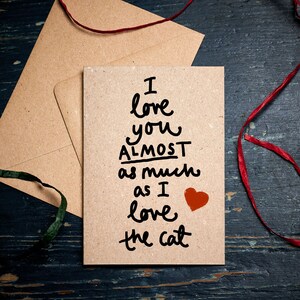 I
love
you
ALMOST
as much
as I
love
the cat